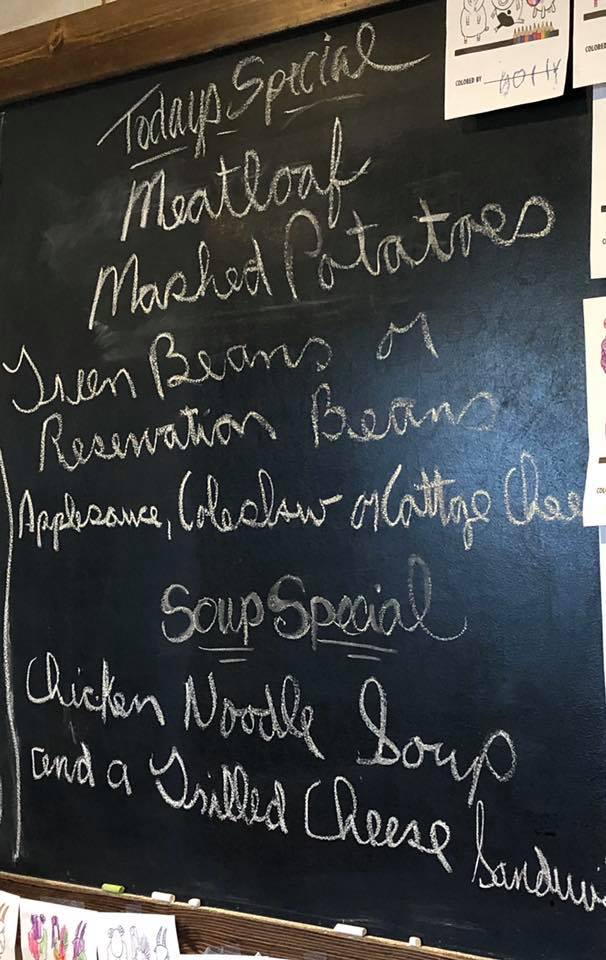 COLORED BY HOLLY
COLORED
Todays Special
Meatloaf
Mashed Potatoes
Green Beans or
Reservation Beans
Applesauce, Coleslaw or Cottage Chee
Soup Special
Chicken Noodle Soup
and a Grilled Cheese Sandwi